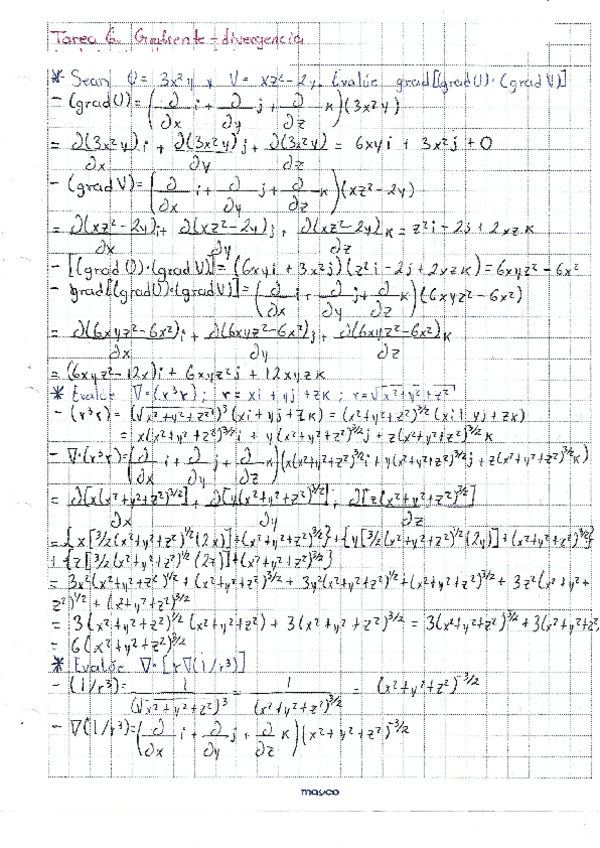 Tarea 6. Gradiente - divergencia
* Sean U = 3x²y y V = xz²-2y. Evalúe grad[(grad U)·(grad V)]
- (grad U) = (∂/∂x i + ∂/∂y j + ∂/∂z k)(3x²y)
= ∂(3x²y)/∂x i + ∂(3x²y)/∂y j + ∂(3x²y)/∂z = 6xyi + 3x²j + 0
- (grad V) = (∂/∂x i + ∂/∂y j + ∂/∂z k)(xz²-2y)
= ∂(xz²-2y)/∂x i + ∂(xz²-2y)/∂y j + ∂(xz²-2y)/∂z k = z²i - 2j + 2xzk
- [(grad U)·(grad V)] = (6xyi + 3x²j)(z²i - 2j + 2xzk) = 6xyz² - 6x²
- grad[(grad U)·(grad V)] = (∂/∂x i + ∂/∂y j + ∂/∂z k)(6xyz² - 6x²)
= ∂(6xyz²-6x²)/∂x i + ∂(6xyz²-6x²)/∂y j + ∂(6xyz²-6x²)/∂z k
= (6xyz² - 12x)i + 6xyz²j + 12xyzk
* Evalúe ∇·(r³r); r = xi + yj + zk; r = √x²+y²+z²
- (r³r) = (√x²+y²+z²)³(xi + yj + zk) = (x²+y²+z²)^3/2 (xi + yj + zk)
= x(x²+y²+z²)^3/2 i + y(x²+y²+z²)^3/2 j + z(x²+y²+z²)^3/2 k
- ∇·(r³r) = (∂/∂x i + ∂/∂y j + ∂/∂z k)(x(x²+y²+z²)^3/2 i + y(x²+y²+z²)^3/2 j + z(x²+y²+z²)^3/2 k)
= ∂[x(x²+y²+z²)^3/2]/∂x + ∂[y(x²+y²+z²)^3/2]/∂y + ∂[z(x²+y²+z²)^3/2]/∂z
= {x[3/2(x²+y²+z²)^1/2 (2x)] + (x²+y²+z²)^3/2} + {y[3/2(x²+y²+z²)^1/2 (2y)] + (x²+y²+z²)^3/2}
+ {z[3/2(x²+y²+z²)^1/2 (2z)] + (x²+y²+z²)^3/2}
= 3x²(x²+y²+z²)^1/2 + (x²+y²+z²)^3/2 + 3y²(x²+y²+z²)^1/2 + (x²+y²+z²)^3/2 + 3z²(x²+y²+
z²)^1/2 + (x²+y²+z²)^3/2
= 3(x²+y²+z²)^1/2 (x²+y²+z²) + 3(x²+y²+z²)^3/2 = 3(x²+y²+z²)^3/2 + 3(x²+y²+z²
= 6(x²+y²+z²)^3/2
* Evalúe ∇·[r∇(1/r³)]
- (1/r³) = 1/(√x²+y²+z²)³ = 1/(x²+y²+z²)^3/2 = (x²+y²+z²)^-3/2
- ∇(1/r³) = (∂/∂x i + ∂/∂y j + ∂/∂z k)(x²+y²+z²)^-3/2
masco